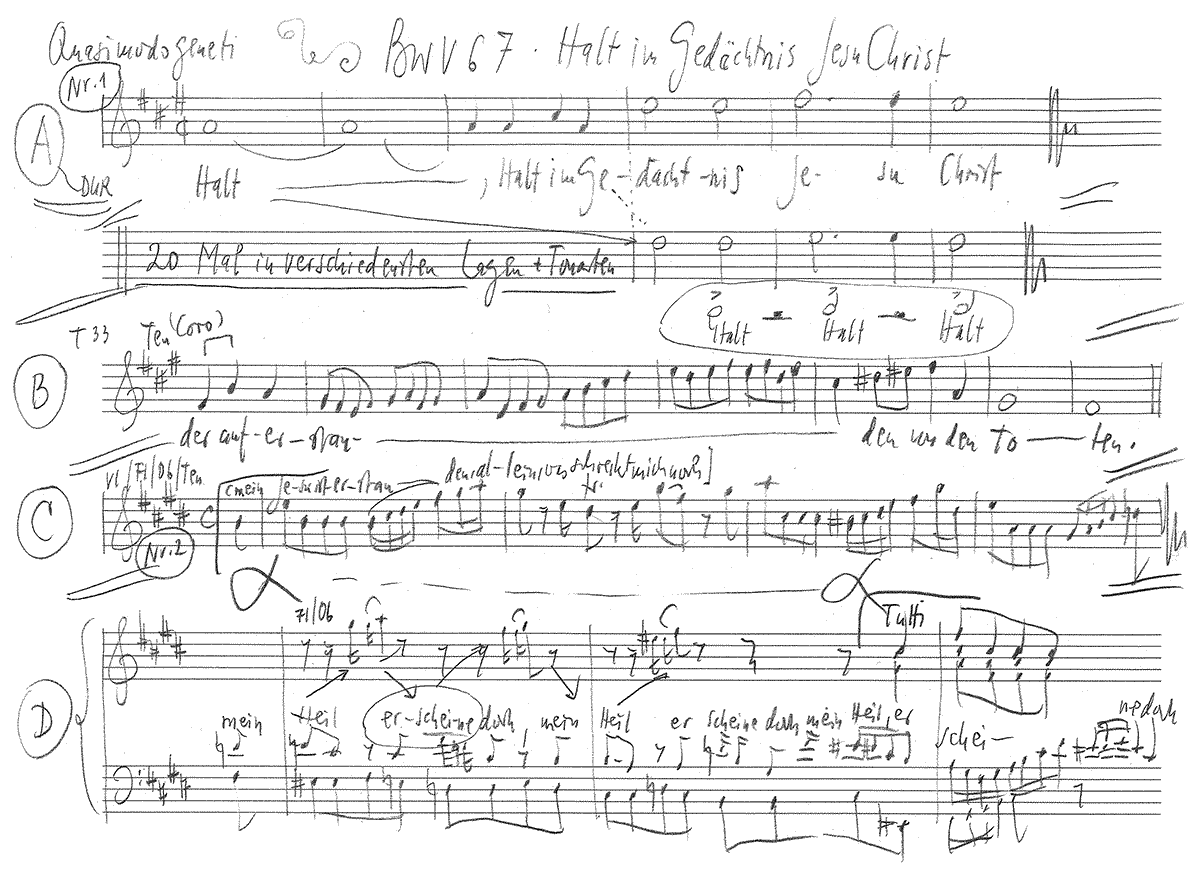 Quasimodogeneti BWV 67. Halt im Gedächtnis Jesu Christ
Nr. 1
A
DUR
Halt , Halt im Ge-dächt-nis Je- su Christ
20 Mal in verschiedensten Lagen + Tonarten
Halt Halt Halt
T 33 Ten (Coro)
B
der auf-er-stan- den von den To-ten.
Vl/Fl/Ob/Ten
mein Je-su ist er-stan-
C
Nr. 2
Fl/Ob Tutti
D
mein Heil er-schei-ne doch mein Heil er scheine doch mein Heil, er schei- ne doch